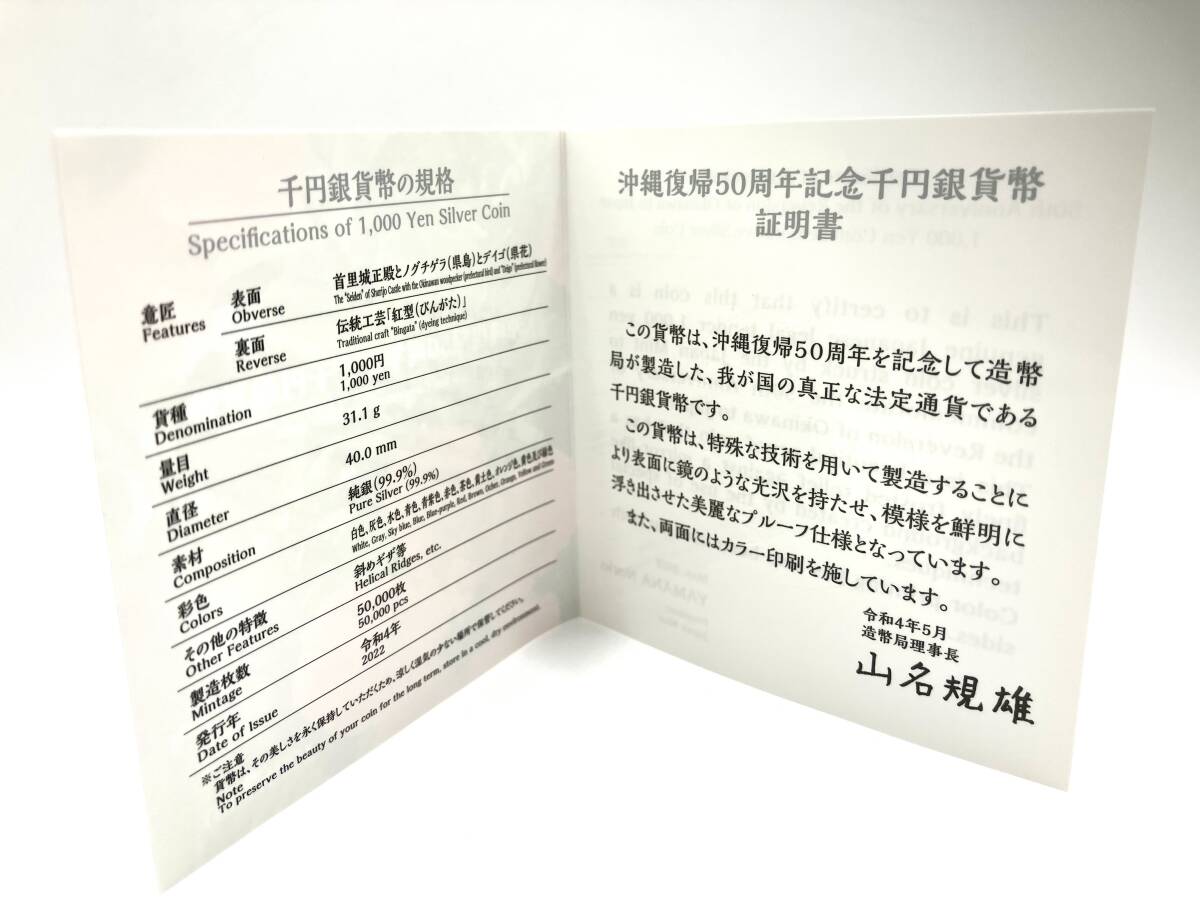 千円銀貨幣の規格
Specifications of 1,000 Yen Silver Coin
意匠
Features
表面
Obverse
首里城正殿とノグチゲラ(県鳥)とデイゴ(県花)
The "Seiden" of Shurijo Castle with the Okinawan woodpecker (prefectural bird) and "Deigo" (prefectural flower)
裏面
Reverse
伝統工芸「紅型(びんがた)」
Traditional craft "Bingata" (dyeing technique)
貨種
Denomination
1,000円
1,000 yen
量目
Weight
31.1 g
直径
Diameter
40.0 mm
素材
Composition
純銀(99.9%)
Pure Silver (99.9%)
彩色
Colors
白色、灰色、水色、青色、青紫色、赤色、茶色、黄土色、オレンジ色、黄色及び緑色
White, Gray, Sky blue, Blue, Blue-purple, Red, Brown, Ocher, Orange, Yellow and Green
その他の特徴
Other Features
斜めギザ等
Helical Ridges, etc.
製造枚数
Mintage
50,000枚
50,000 pcs
発行年
Date of Issue
令和4年
2022
※ご注意
貨幣は、その美しさを永く保持していただくため、涼しく湿気の少ない場所で保管してください。
Note
To preserve the beauty of your coin for the long term, store in a cool, dry environment.
沖縄復帰50周年記念千円銀貨幣
証明書
この貨幣は、沖縄復帰50周年を記念して造幣
局が製造した、我が国の真正な法定通貨である
千円銀貨幣です。
この貨幣は、特殊な技術を用いて製造することに
より表面に鏡のような光沢を持たせ、模様を鮮明に
浮き出させた美麗なプルーフ仕様となっています。
また、両面にはカラー印刷を施しています。
令和4年5月
造幣局理事長
山名規雄